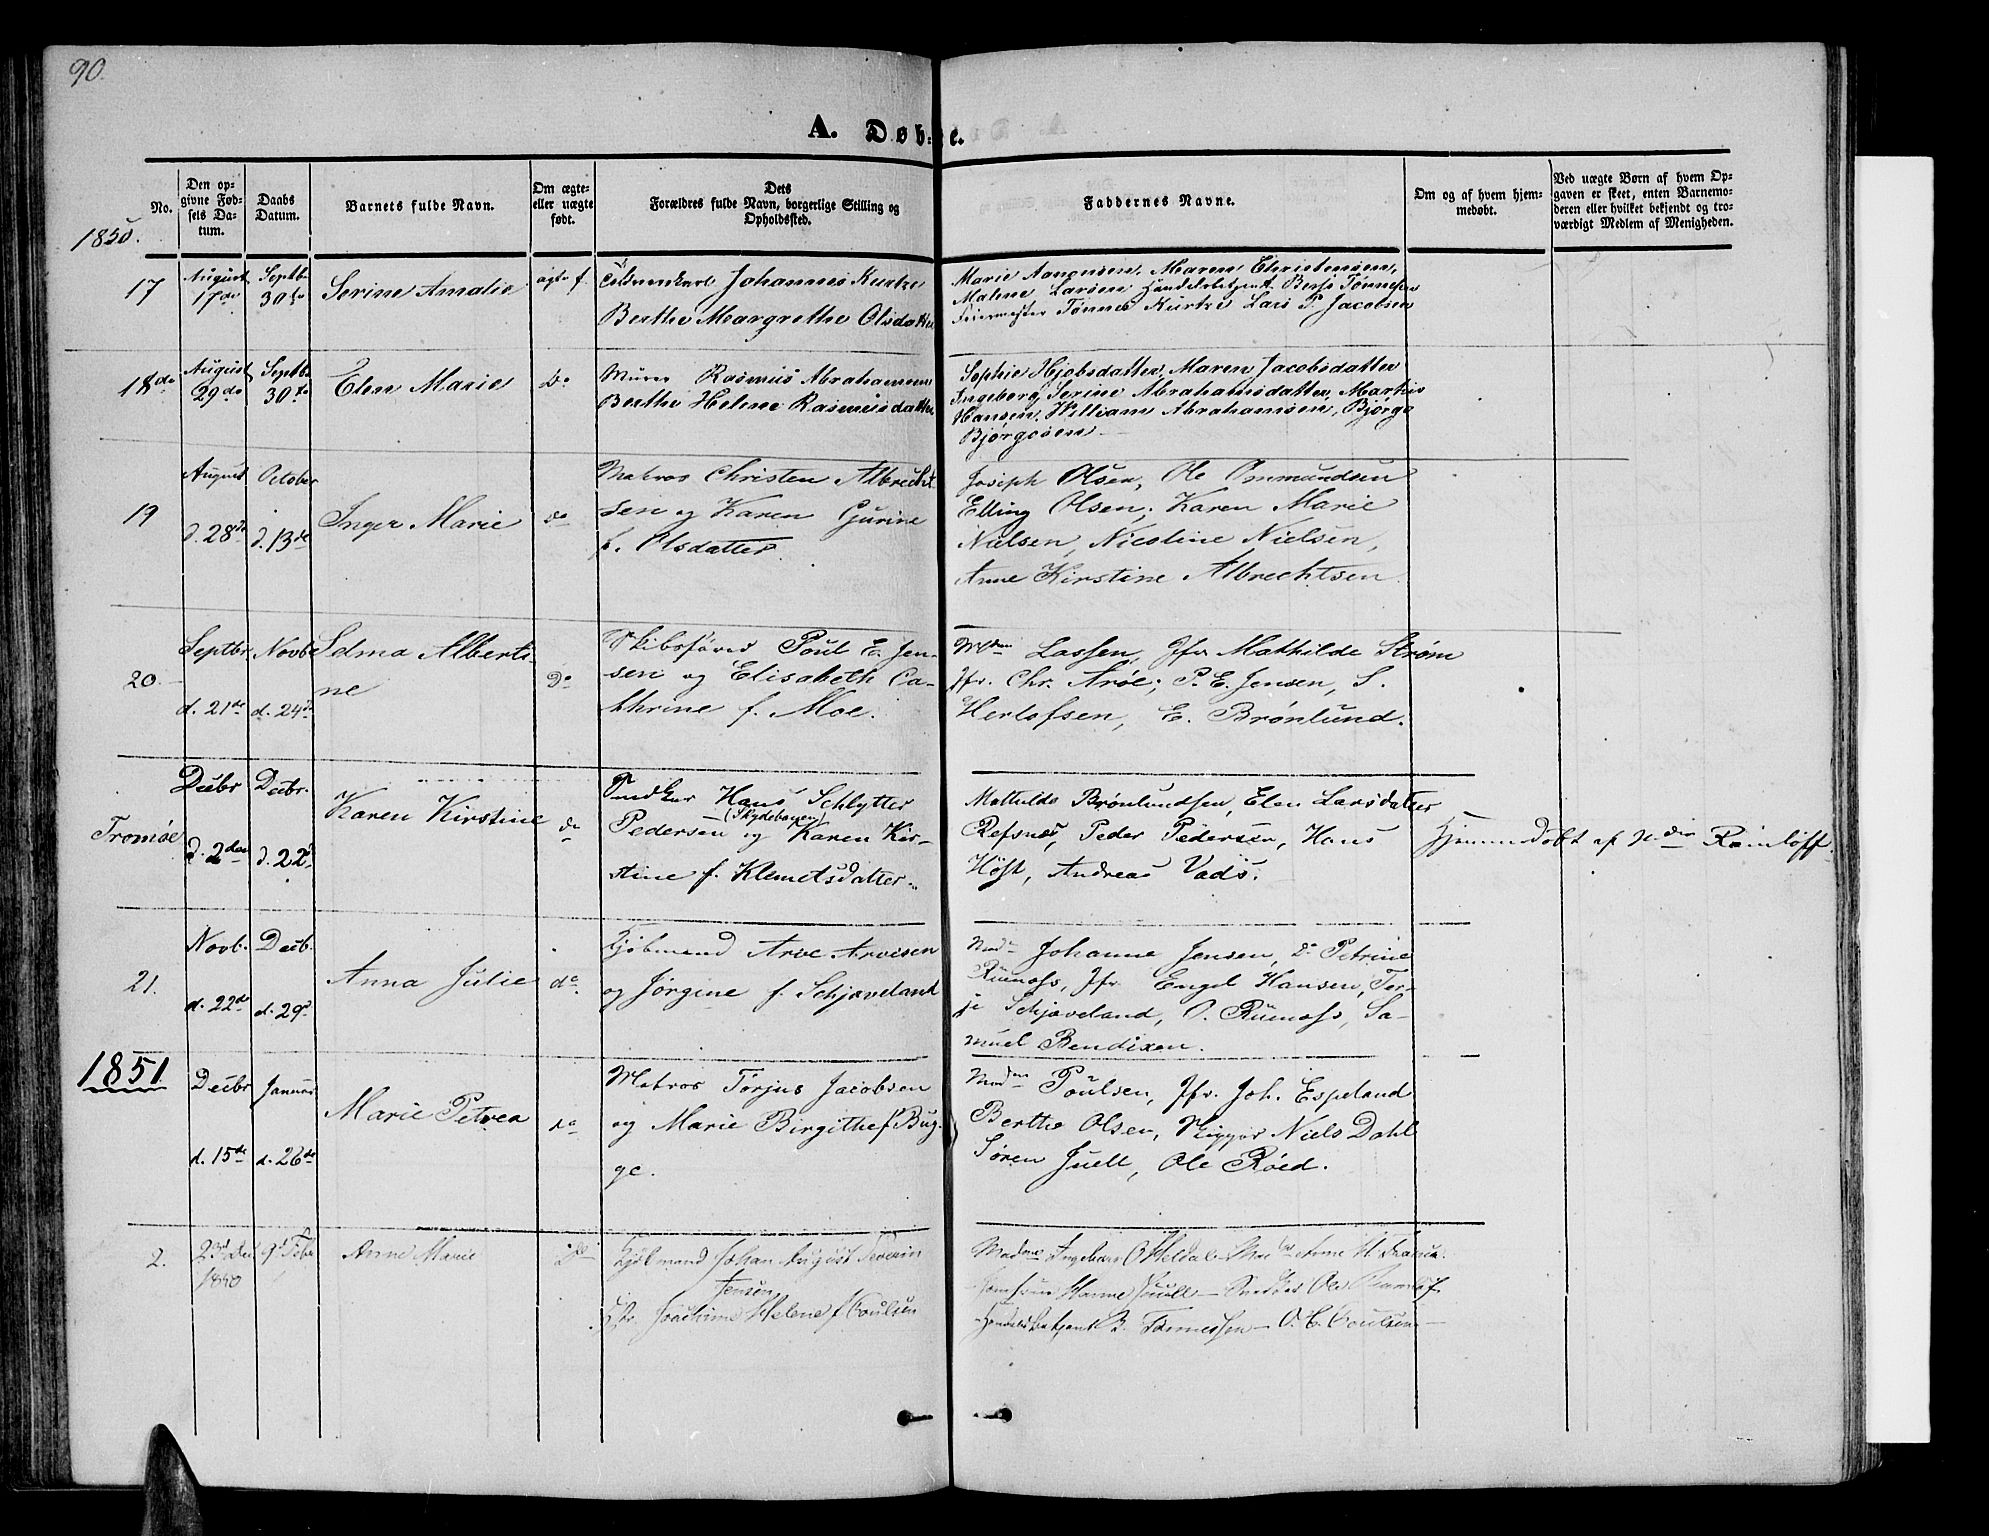 90.
A. Døbte.
No.
Den opgivne Fødsels Datum.
Daabs Datum.
Barnets fulde Navn.
Om ægte- eller uægte født.
Dets Forældres fulde Navn, borgerlige Stilling og Opholdssted.
Faddernes Navne.
Om og af hvem hjemmedøbt.
Ved uægte Børn af hvem Opgaven er skeet, enten Barnemoderen eller hvilket bekjendt og troværdigt Medlem af Menigheden.
1850.
17
August 17de
Septbr 30te
Serine Amalie
ægte f.
Johannes Kurtze
Berthe Margrethe Olsdatter
Marie Aanonsen, Maren Christensen,
Malene Larsen Handelsbetjent Berfs Tønnesen
Feiermester Tønnes Kurtze Lars P. Jacobsen
18de
August 29de
Septbr 30te
Elen Marie
Do
Murer Rasmus Abrahamsen
Berthe Helene Rasmusdatter
Sophie Hjobsdatter, Maren Jacobsdatter
Ingeborg Serine Abrahamsdatter, Markus
Hansen, William Abrahamsen, Bjørge
Bjørgesen
19
August d. 28de
October d. 13de
Inger Marie
do
Matros Christen Albrecht-
sen og Karen Gurine
f. Olsdatter.
Joseph Olsen, Ole Ommundsen
Elling Olsen; Karen Marie
Nielsen, Nicoline Nielsen,
Anne Kirstine Albrechtsen.
20.
Septbr. d. 21de
Novb d. 24de
Selma Alberti-
ne
Do
Skibsfører Poul E. Jen-
sen og Elisabeth Ca-
thrine f. Moe.
Mdm Lassen, Jfr Mathilde Strøm
Jfr. Chr. Arøe; P. E. Jensen, S.
Herlofsen, E. Brønlund.
Tromøe
Decbr d. 2den
Decbr. d. 22d
Karen Kirstine
do
Snedker Hans Schlytter
(Skydebanen)
Pedersen og Karen Kir-
stine f. Klemetsdatter
Mathilde Brønlundsen, Elen Larsdatter
Refsnes, Peder Pedersen, Hans
Høst, Andreas Vads.
Hjemmedøbt af
21.
Novb. d. 22de
Decb. d. 29d
Anna Julie
do
Kjøbmand Arve Arvesen
og Jørgine f. Schjæveland
Mdm Johanne Jensen, Do Petrine
Jfr. Engel Hansen, Ter-
je Schjæveland, O. Sa-
muel Bendixen.
1851
Decbr d. 15de
Januar d. 26de
Marie Petrea
do
Matros Torjus Jacobsen
og Marie Birgithe f Bug-
ge.
Madm Poulsen, Jfr. Joh. Espeland
Berthe Olsen, Rigger Niels Dahl
Søren Juell, Ole Røed.
2.
23d Dec 1850
9d Febr
Anne Marie
Do
Kjøbmand Johan August Severin
Jensen
Joachime Helene f Poulsen
Madme Ingebor O Heldal Anne M.
Jomfrue Hanne Juell Snedker Ole
Handelsbetjent B. Tønnessen O. C. Poulsen